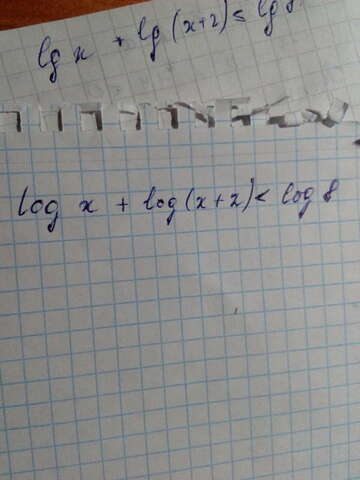 lg x + lg (x+2) ≤ lg 8
log x + log (x+2) < log 8